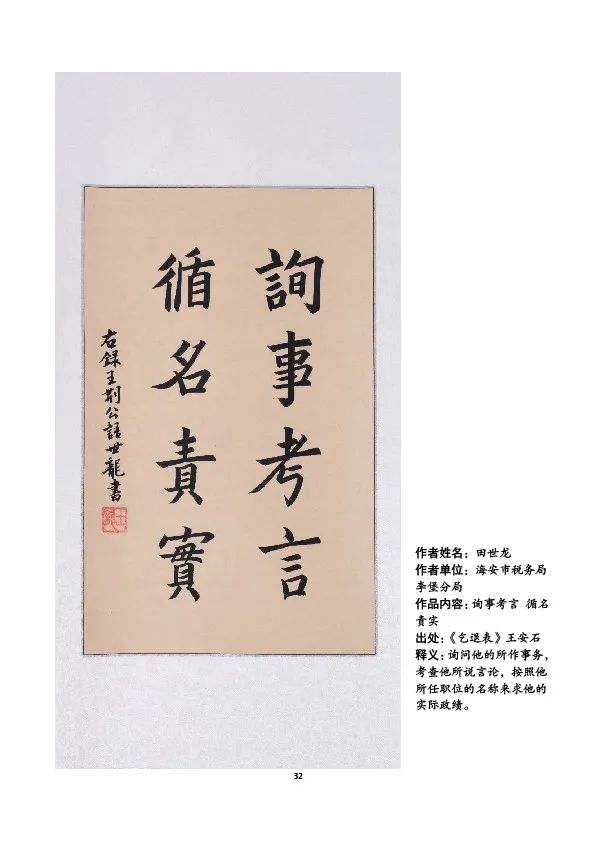 詢事考言
循名責實
右錄王荆公語世龍書
作者姓名：田世龙
作者单位：海安市税务局
李堡分局
作品内容：询事考言 循名
责实
出处：《乞退表》王安石
释义：询问他的所作事务，
考查他所说言论，按照他
所任职位的名称来求他的
实际政绩。
32